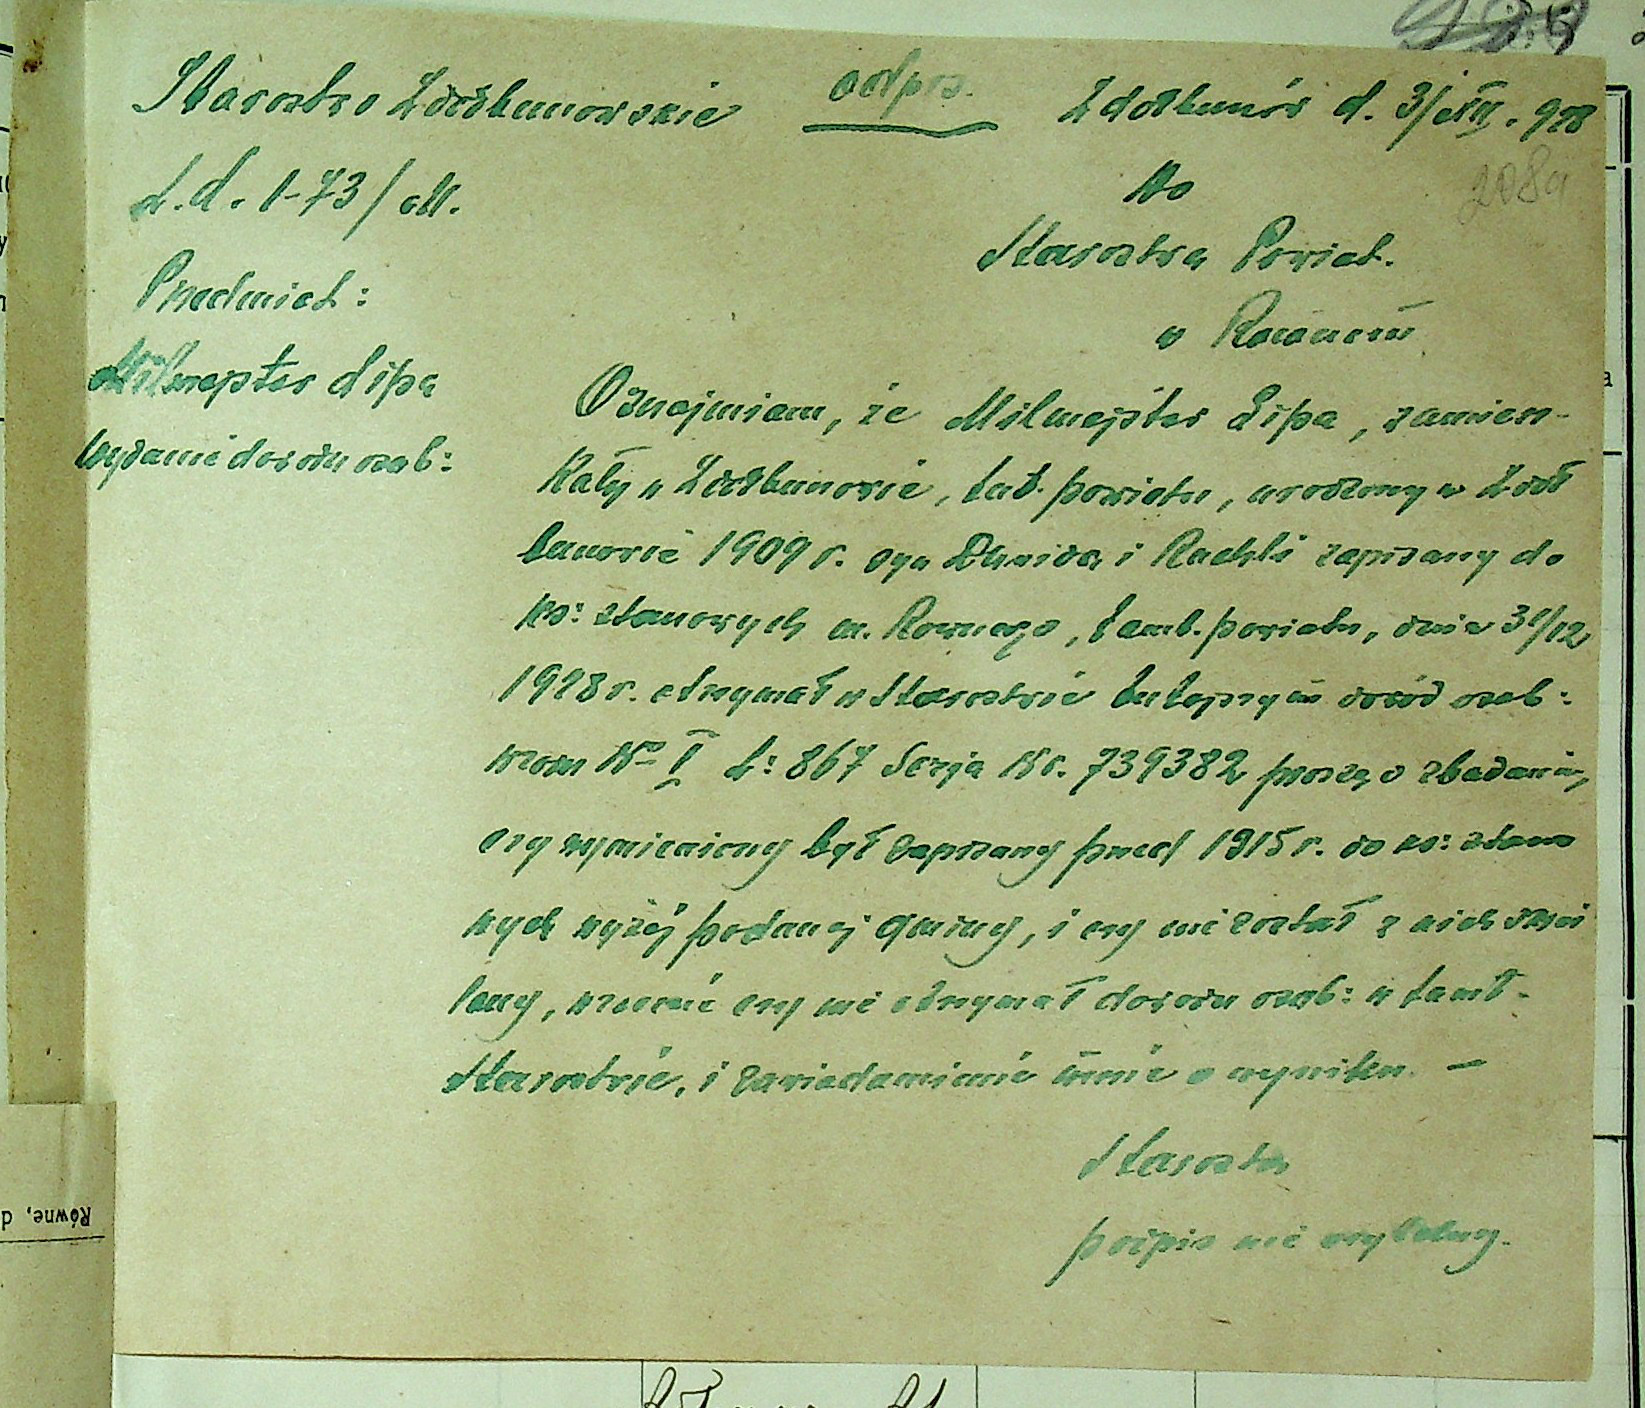 Starostwo Zdołbunowskie
odpis.
Zdołbunów d. 3/XII. 928
208a
L.d. 1-73/
Do
Starostwa Powiat.
w Równem
Przedmiot:
Milmejster Lipa
wydanie dowodu osob:
Oznajmiam, że Milmejster Lipa, zamiesz-
kały w Zdołbunowie, tut. powiatu, urodzony w Zdoł
bunowie 1909 r. syn Dawida i Rachli zapisany do
ks: stanowych m. Równego, tamt. powiatu, dnia 31/12
1928 r. otrzymał w Starostwie tutejszym dowód osob:
wzoru No I L: 867 Serja Nr. 739382, proszę o zbadanie,
czy wymieniony był zapisany przed 1915 r. do ks: stano
wych wyżej podanej gminy, i czy nie został z nich skreś
lony, wreszcie czy nie otrzymał dowodu osob: w tamt.
Starostwie, i zawiadomienie mnie o wyniku. —
Starosta
podpis nie czytelny.
Równe, d